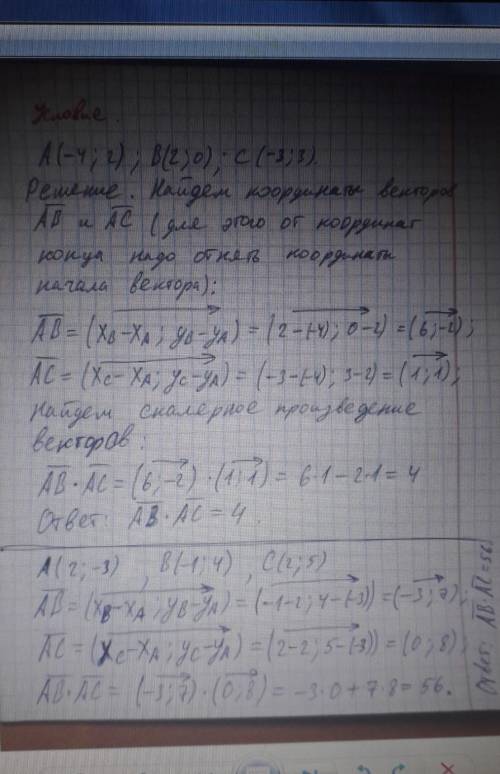 Условие.
A(-4; 2); B(2; 0); C(-3; 3).
Решение. Найдем координаты векторов
AB и AC (для этого от координат
конца надо отнять координаты
начала вектора):
AB = (xB-xA; yB-yA) = (2-(-4); 0-2) = (6; -2);
AC = (xC-xA; yC-yA) = (-3-(-4); 3-2) = (1; 1);
Найдем скалерное произведение
векторов:
AB · AC = (6; -2) · (1; 1) = 6·1-2·1 = 4
Ответ: AB · AC = 4.
A(2; -3), B(-1; 4), C(2; 5)
AB = (xB-xA; yB-yA) = (-1-2; 4-(-3)) = (-3; 7);
AC = (xC-xA; yC-yA) = (2-2; 5-(-3)) = (0; 8);
AB · AC = (-3; 7) · (0; 8) = -3·0+7·8 = 56.
Ответ: AB·AC = 56.